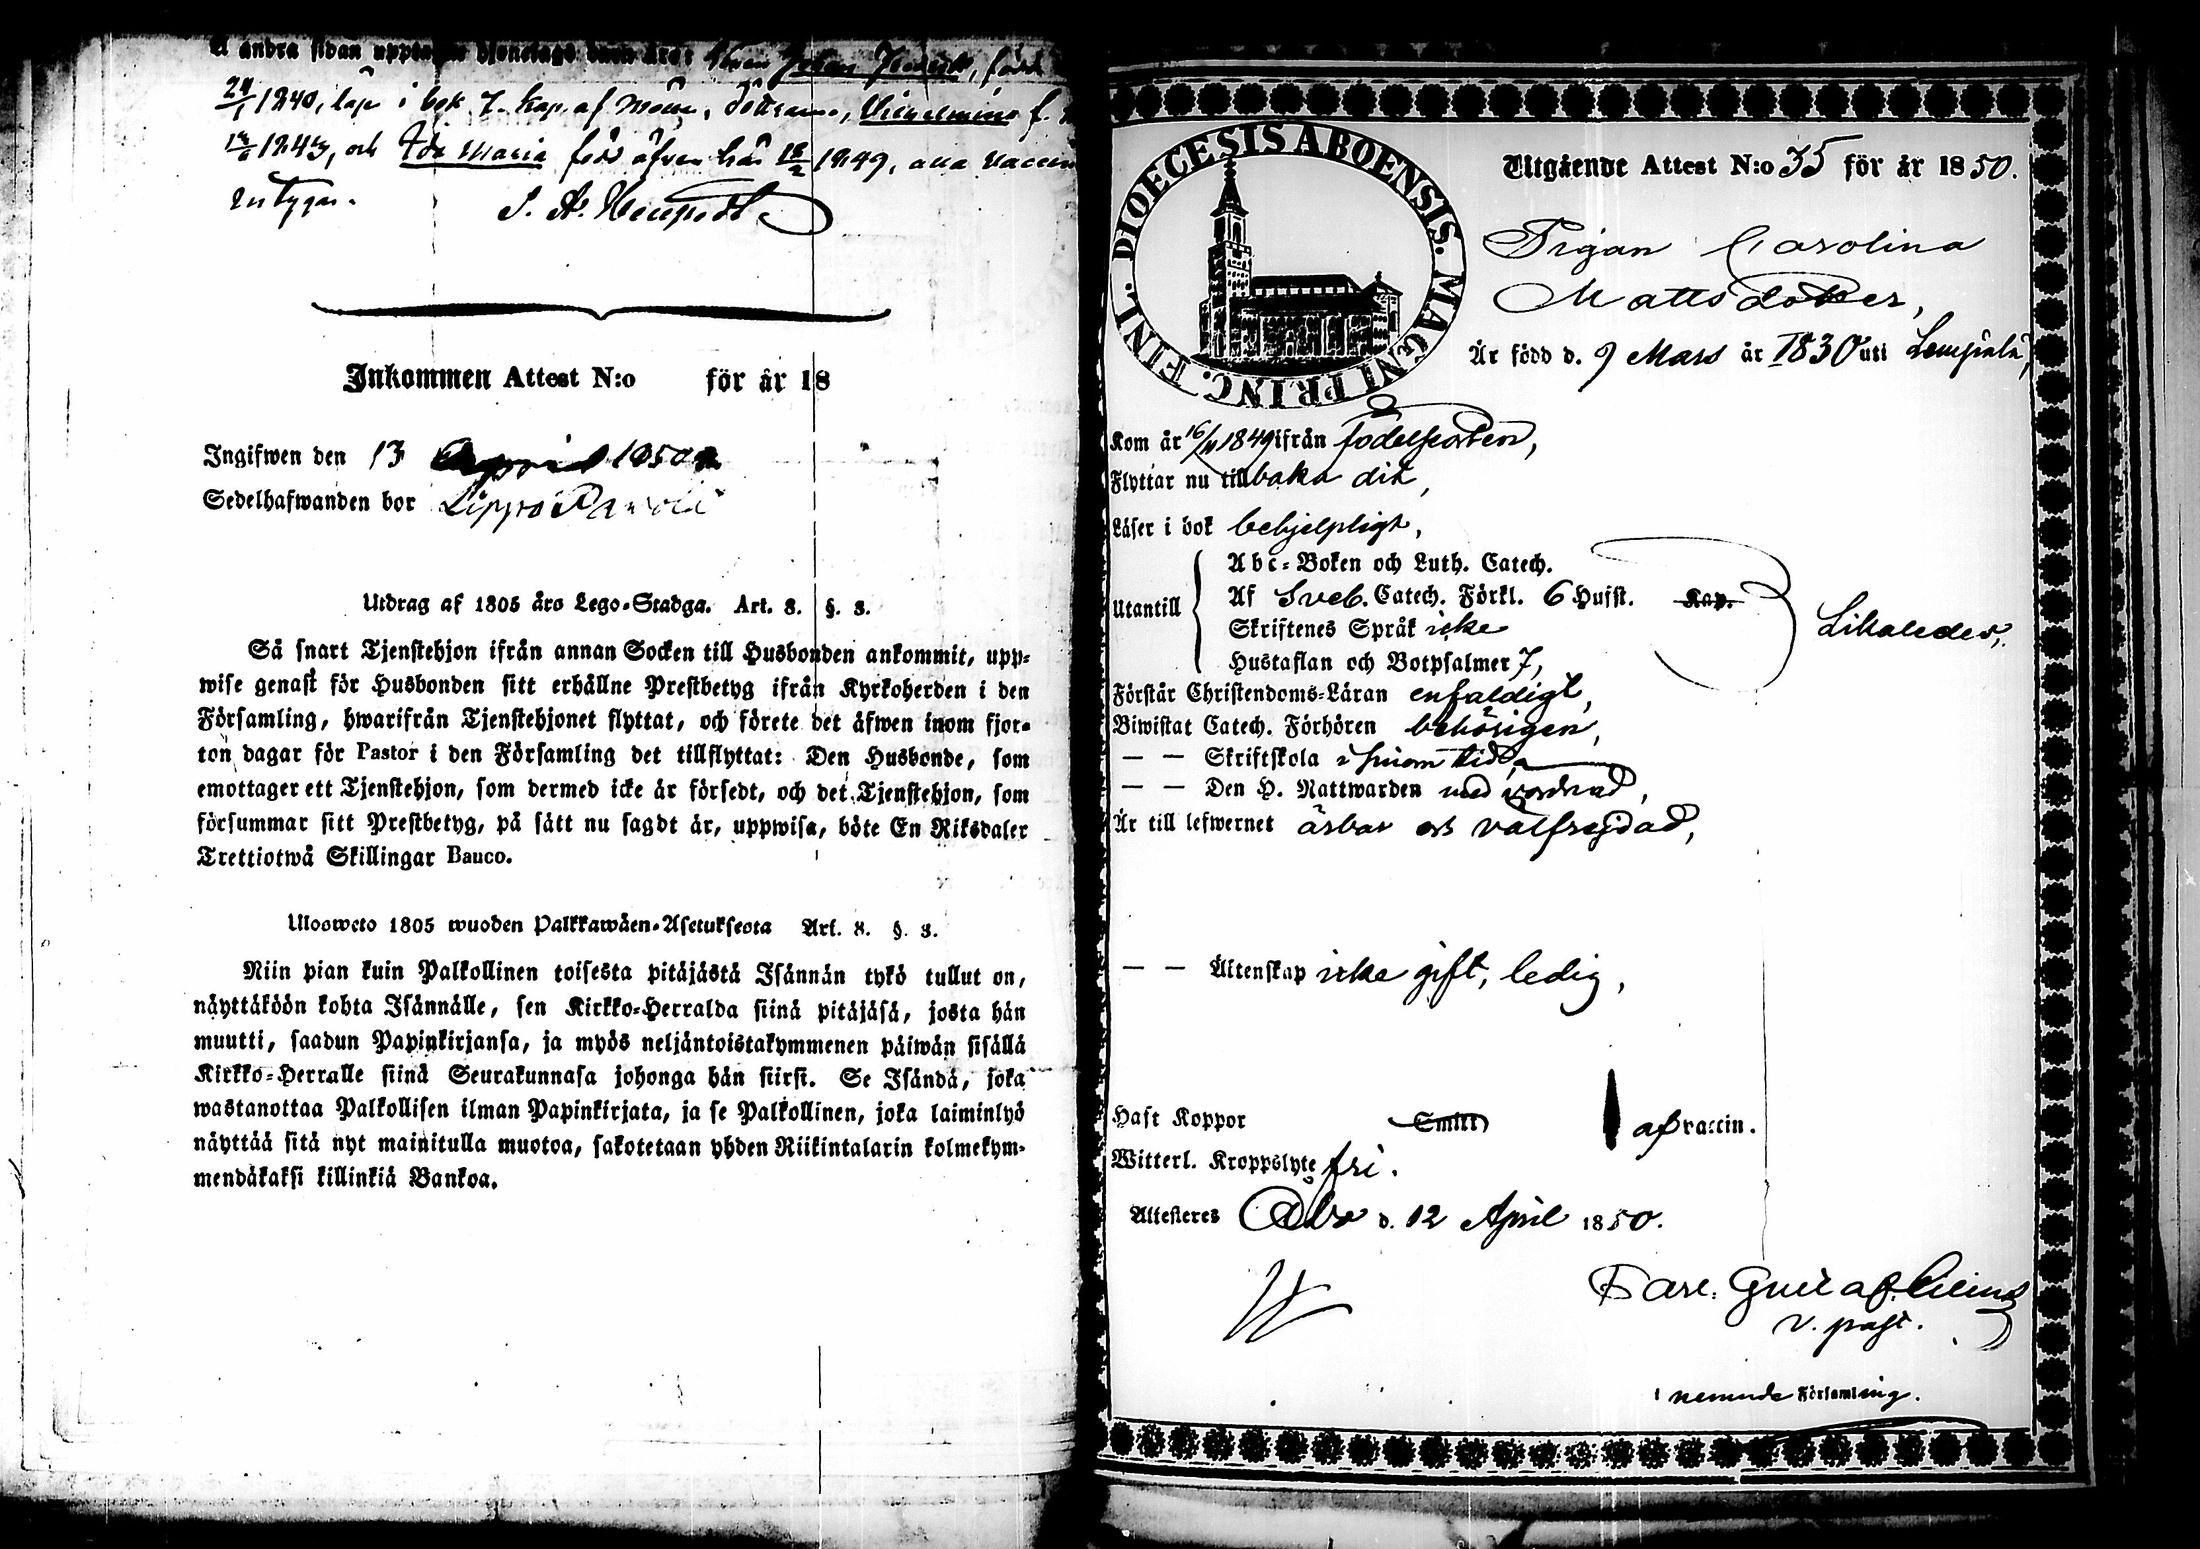 å andra sidan
24/1 1840, läse i bok 7. kap. af Döttrarne, Vilhelmina f.
1843, och Ida Maria född äfven här 18/2 1849, alla
intygar.
Inkommen Attest N:o för år 18
Ingifwen den 13 April 1850
Sedelhafwanden bor Lippo Pawola
Utdrag af 1805 års Lego-Stadga. Art. 8. §. 3.
Så snart Tjenstehjon ifrån annan Socken till Husbonden ankommit, upp-
wise genast för Husbonden sitt erhållne Prestbetyg ifrån Kyrkoherden i den
Församling, hwarifrån Tjenstehjonet flyttat, och förete det äfwen inom fjor-
ton dagar för Pastor i den Församling det tillflyttat: Den Husbonde, som
emottager ett Tjenstehjon, som dermed icke är försedt, och det Tjenstehjon, som
försummar sitt Prestbetyg, på sätt nu sagdt är, uppwisa, böte En Riksdaler
Trettiotwå Skillingar Banco.
Ulosweto 1805 wuoden Palkkawäen-Asetuksesta Art. 8. §. 3.
Niin pian kuin Palkollinen toisesta pitäjästä Isännän tykö tullut on,
näyttäköön kohta Isännälle, sen Kirkko-Herralda siinä pitäjäsä, josta hän
muutti, saadun Papinkirjansa, ja myös neljäntoistakymmenen päiwän sisällä
Kirkko-Herralle siinä Seurakunnasa johonga hän siirsi. Se Isändä, joka
wastanottaa Palkollisen ilman Papinkirjata, ja se Palkollinen, joka laiminlyö
näyttää sitä nyt mainitulla muotoa, sakotetaan yhden Riikintalarin kolmekym-
mendäkaksi killinkiä Bankoa.
DIOECESIS ABOENSIS. MAGNI PRINC. FINL.
Utgående Attest N:o 35 för år 1850.
Pigan Carolina
Mattsdotter,
Är född d. 9 Mars år 1830 uti Lempälä,
Kom år 16/11 1849 ifrån födelseorten,
Flyttar nu tillbaka dit,
Läser i bok behjelpligt,
Utantill
Abc-Boken och Luth. Catech.
Af Sveb. Catech. Förkl. 6 Hufst. Kap.
Skriftenes Språk icke
Hustaflan och Botpsalmer 7,
Likaledes,
Förstår Christendoms-Läran enfaldigt,
Biwistat Catech. Förhören behörigen,
— — Skriftskola i sinom tid,
— — Den H. Nattwarden med vördnad,
Är till lefwernet ärbar och välfrejdad,
— — Äktenskap icke gift, ledig,
Haft Koppor Smitt afvaccin.
Witterl. Kroppslyte fri.
Attesteres Åbo d. 12 April 1850.
v. past.
i nämnde Församling.